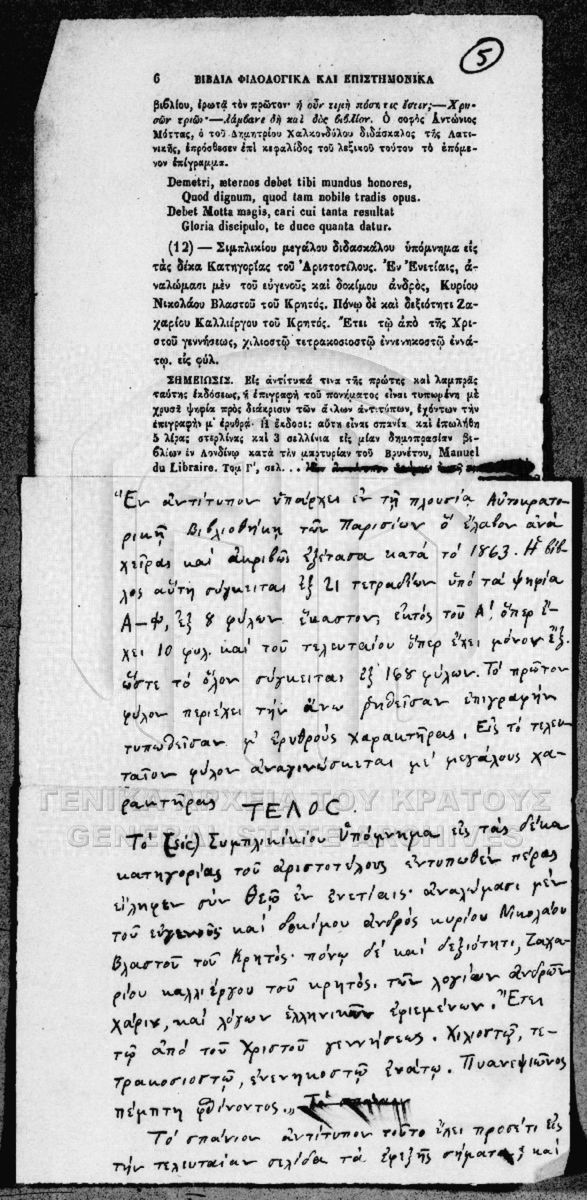 5
6 ΒΙΒΛΙΑ ΦΙΛΟΛΟΓΙΚΑ ΚΑΙ ΕΠΙΣΤΗΜΟΝΙΚΑ
βιβλίου, ἐρωτᾷ τὸν πρῶτον· ἡ οὖν τιμὴ πόση τις ἐστιν;— Χρυ-
σῶν τριῶν·— λάμβανε δὴ καὶ δὸς βιβλίον. Ὁ σοφὸς Ἀντώνιος
Μόττας, ὁ τοῦ Δημητρίου Χαλκονδύλου διδάσκαλος τῆς Λατι-
νικῆς, ἐπρόσθεσεν ἐπὶ κεφαλίδος τοῦ λεξικοῦ τούτου τὸ ἑπόμε-
νον ἐπίγραμμα.
Demetri, æternos debet tibi mundus honores,
Quod dignum, quod tam nobile tradis opus.
Debet Motta magis, cari cui tanta resultat
Gloria discipulo, te duce quanta datur.
(12) — Σιμπλικίου μεγάλου διδασκάλου ὑπόμνημα εἰς
τὰς δέκα Κατηγορίας τοῦ Ἀριστοτέλους. Ἐν Ἐνετίαις, ἀ-
ναλώμασι μὲν τοῦ εὐγενοῦς καὶ δοκίμου ἀνδρὸς, Κυρίου
Νικολάου Βλαστοῦ τοῦ Κρητός. Πόνῳ δὲ καὶ δεξιότητι Ζα-
χαρίου Καλλιέργου τοῦ Κρητός. Ἔτει τῷ ἀπὸ τῆς Χρι-
στοῦ γεννήσεως, χιλιοστῷ τετρακοσιοστῷ ἐννενηκοστῷ ἐννά-
τῳ. εἰς φύλ.
ΣΗΜΕΙΩΣΙΣ. Εἰς ἀντίτυπά τινα τῆς πρώτης καὶ λαμπρᾶς
ταύτης ἐκδόσεως, ἡ ἐπιγραφὴ τοῦ πονήματος εἶναι τυπωμένη μὲ
χρυσᾶ ψηφία πρὸς διάκρισιν τῶν ἄλλων ἀντιτύπων, ἐχόντων τὴν
ἐπιγραφὴν μ' ἐρυθρά. Ἡ ἔκδοσις αὕτη εἶναι σπανία καὶ ἐπωλήθη
5 λίρας στερλίνας καὶ 3 σελλίνια εἰς μίαν δημοπρασίαν βι-
βλίων ἐν Λονδίνῳ κατὰ τὴν μαρτυρίαν τοῦ Βρυνέτου, Manuel
du Libraire. Τομ Γ', σελ. . .
Ἓν ἀντίτυπον ὑπάρχει ἐν τῇ πλουσίᾳ Αὐτοκρατο-
ρικῇ Βιβλιοθήκῃ τῶν Παρισίων ὃ ἔλαβον ἀνὰ
χεῖρας καὶ ἀκριβῶς ἐξέτασα κατὰ τὸ 1863. Ἡ βίβ-
λος αὕτη σύγκειται ἐξ 21 τετραδίων ὑπὸ τὰ ψηφία
Α-Ψ, ἐξ 8 φύλων ἕκαστον, ἐκτὸς τοῦ Α', ὅπερ ἔ-
χει 10 φυλ. καὶ τοῦ τελευταίου ὅπερ ἔχει μόνον ἓξ.
ὥστε τὸ ὅλον σύγκειται ἐξ 168 φύλων. Τὸ πρῶτον
φύλον περιέχει τὴν ἄνω ῥηθεῖσαν ἐπιγραφὴν
τυπωθεῖσαν μ' ἐρυθροὺς χαρακτῆρας. Εἰς τὸ τελευ-
ταῖον φύλον ἀναγινώσκεται μὲ μεγάλους χα-
ρακτῆρας ΤΕΛΟΣ.
Τὸ (sic) Συμπλικίκιου Ὑπόμνημα εἰς τὰς δέκα
κατηγορίας τοῦ ἀριστοτέλους ἐντυπωθὲν πέρας
εἴληφεν σὺν Θεῷ ἐν ἐνετίαις· ἀναλώμασι μὲν
τοῦ εὐγενοῦς καὶ δοκίμου ἀνδρὸς κυρίου Νικολάου
Βλαστοῦ τοῦ Κρητὸς· πόνῳ δὲ καὶ δεξιότητι, Ζαχα-
ρίου καλλιέργου τοῦ κρητὸς. τῶν λογίων ἀνδρῶν
χάριν, καὶ λόγων ἑλληνικῶν ἐφιεμένων. Ἔτει
τῷ ἀπὸ τοῦ Χριστοῦ γεννήσεως. Χιλιοστῷ, τε-
τρακοσιοστῷ, ἐνενηκοστῷ ἐνάτῳ. Πυανεψιῶνος
πέμπτῃ φθίνοντος.„
Τὸ σπάνιον ἀντίτυπον τοῦτο ἔχει προσέτι εἰς
τὴν τελευταίαν σελίδα τὰ ἐφεξῆς σήματα, καὶ
ΓΕΝΙΚΑ ΑΡΧΕΙΑ ΤΟΥ ΚΡΑΤΟΥΣ
GENERAL STATE ARCHIVES